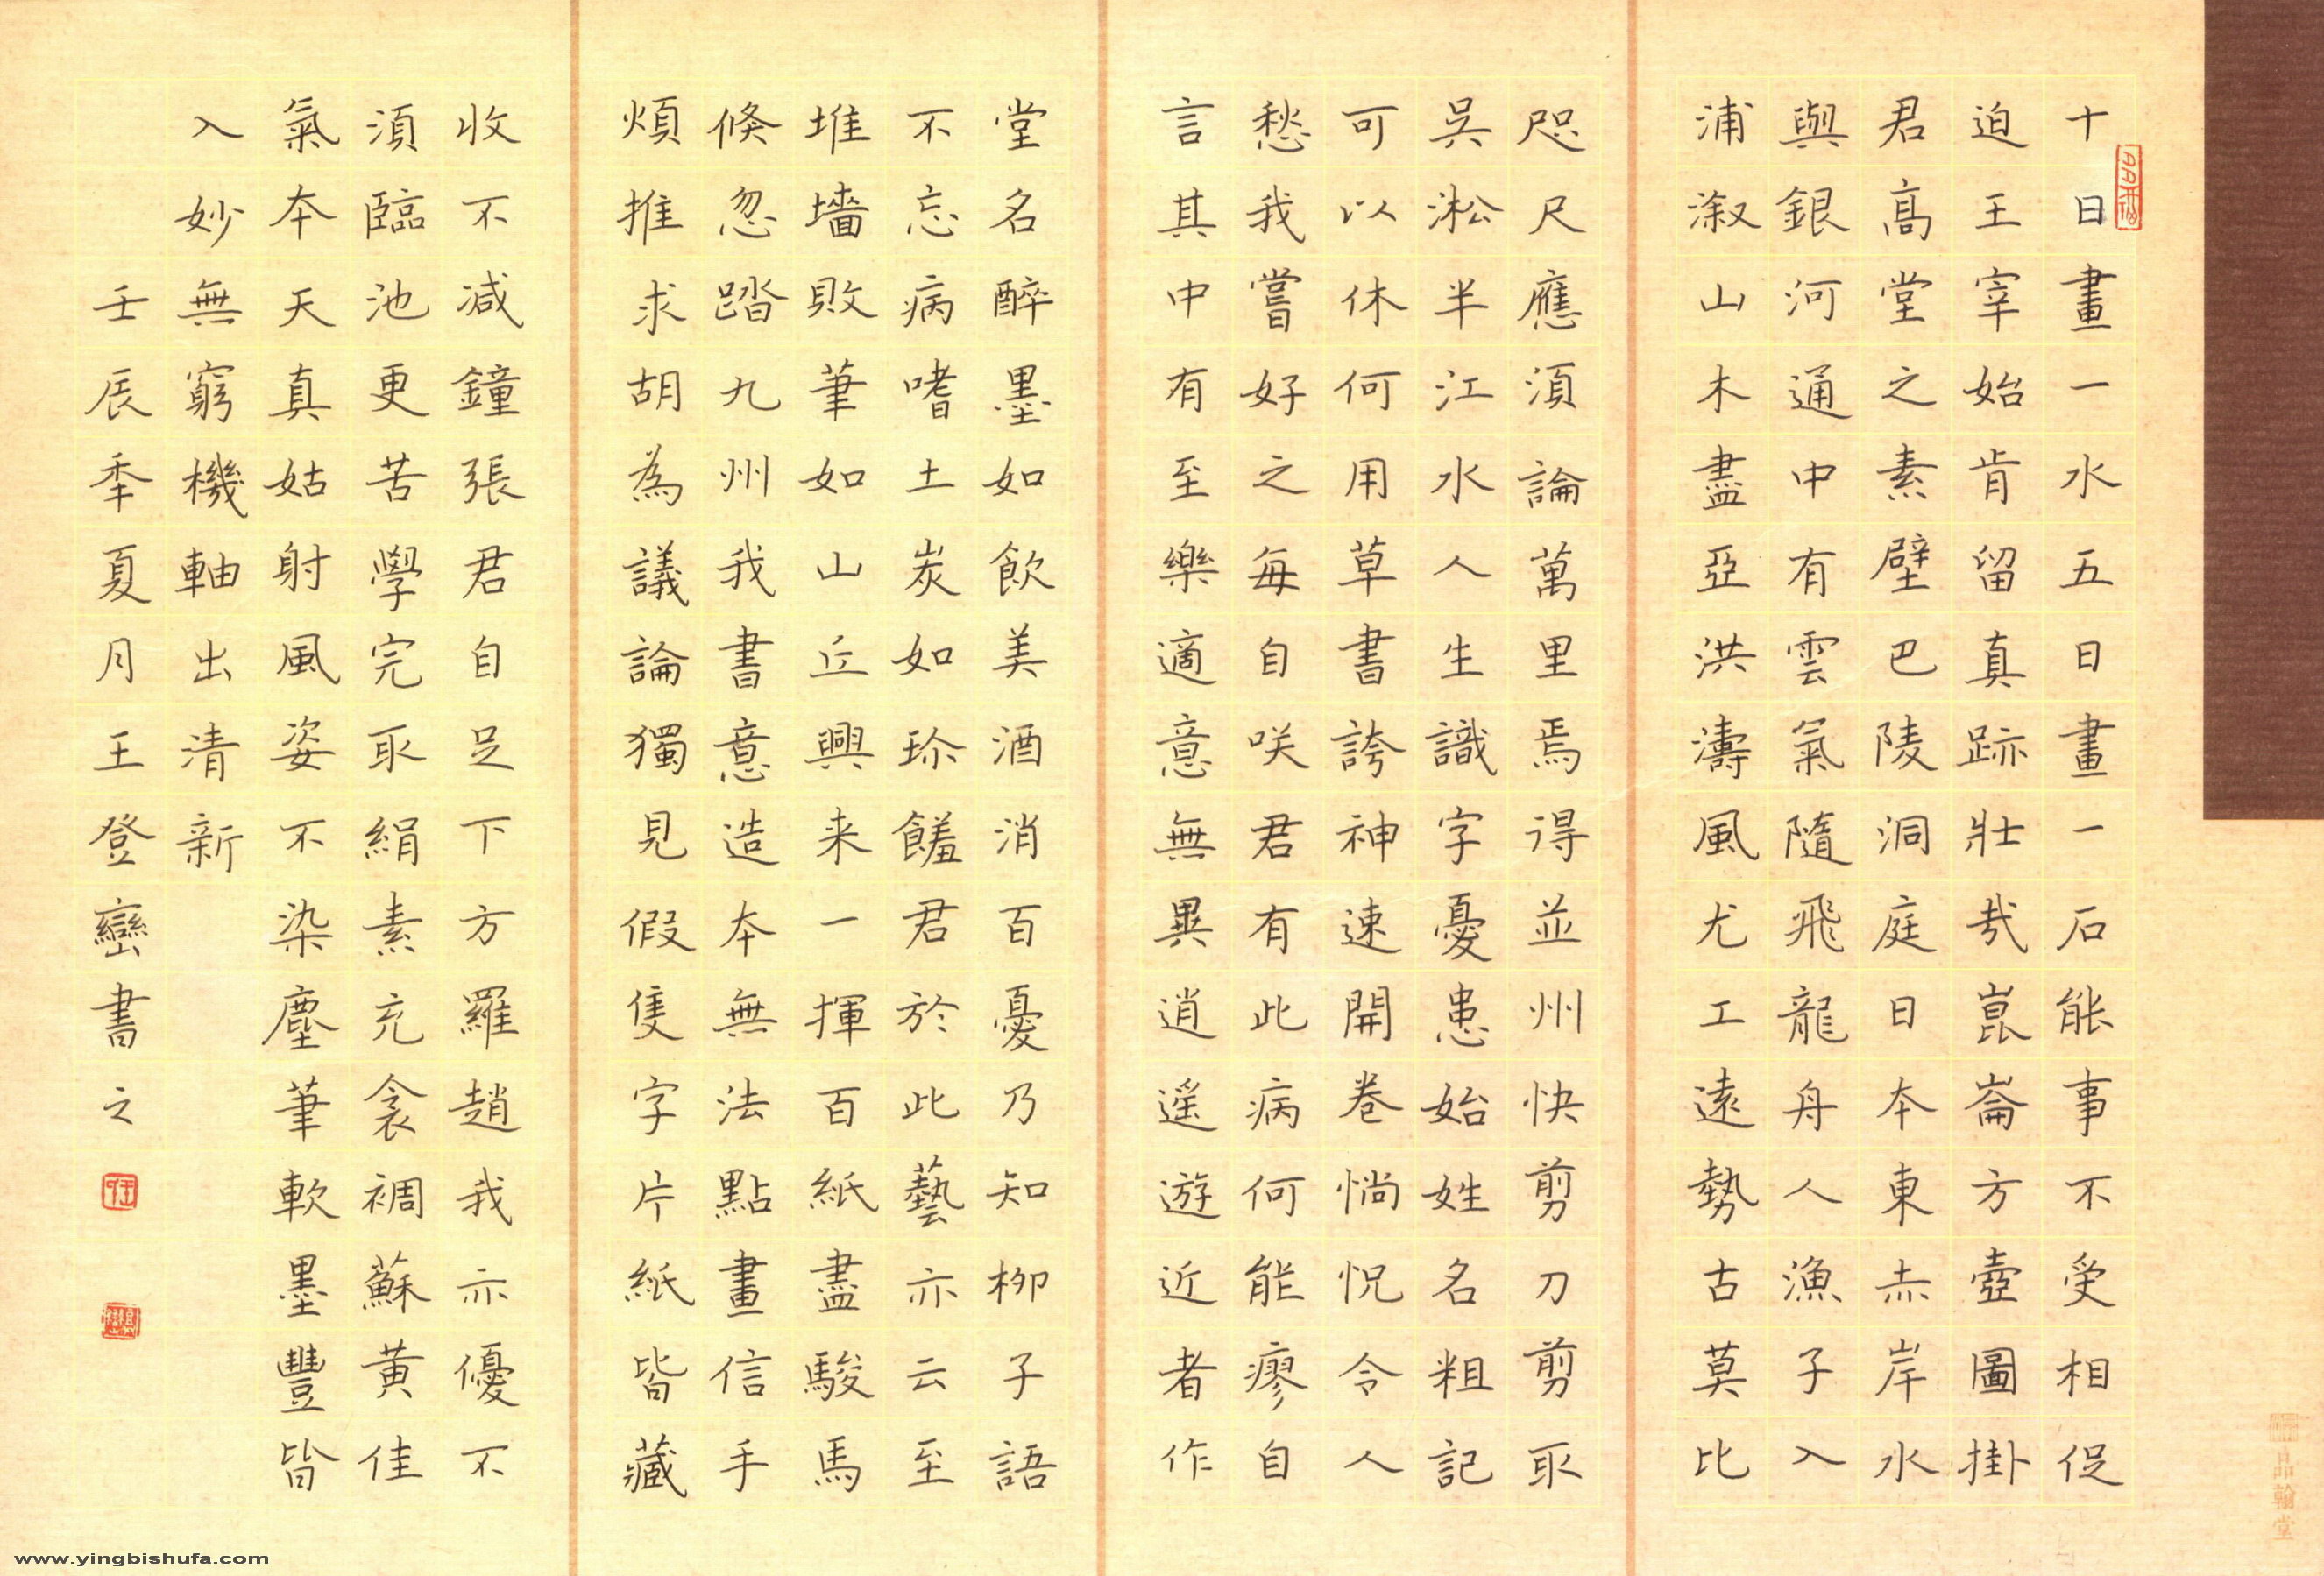 十日畫一水五日畫一石能事不受相促
迫王宰始肯留真跡壯哉崑崙方壺圖掛
君高堂之素壁巴陵洞庭日本東赤岸水
與銀河通中有雲氣隨飛龍舟人漁子入
浦溆山木盡亞洪濤風尤工遠勢古莫比
咫尺應須論萬里焉得並州快剪刀剪取
吳淞半江水人生識字憂患始姓名粗記
可以休何用草書誇神速開卷惝怳令人
愁我嘗好之每自咲君有此病何能瘳自
言其中有至樂適意無異逍遙遊近者作
堂名醉墨如飲美酒消百憂乃知柳子語
不忘病嗜土炭如珎饈君於此藝亦云至
堆墻敗筆如山丘興来一揮百紙盡駿馬
倏忽踏九州我書意造本無法點畫信手
煩推求胡為議論獨見假隻字片紙皆藏
收不減鐘張君自足下方羅趙我亦優不
須臨池更苦學完取絹素充衾裯蘇黃佳
氣本天真姑射風姿不染塵筆軟墨豐皆
入妙無窮機軸出清新
壬辰季夏月王登巒書之
品翰堂
www.yingbishufa.com